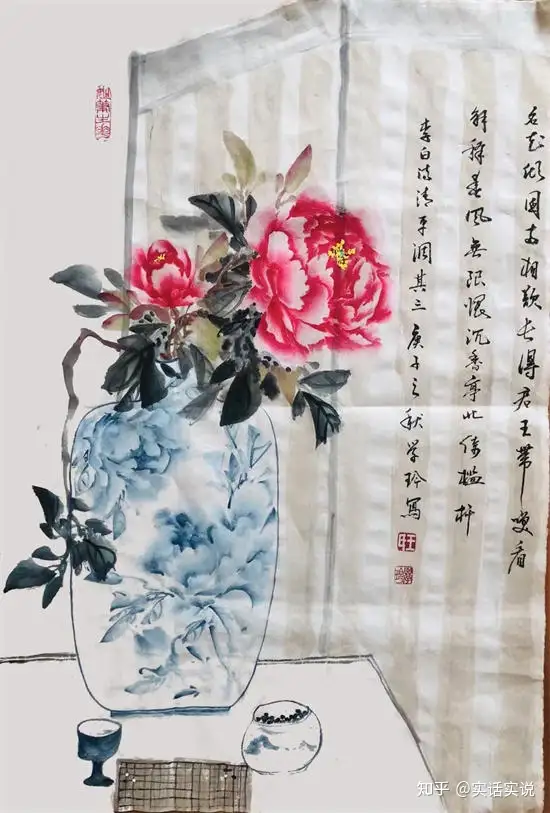 名花倾国两相欢长得君王带咲看
解释春风无限恨沉香亭北倚槛杆
李白诗清平调其三庚子之秋学玲写
知乎 @实话实说